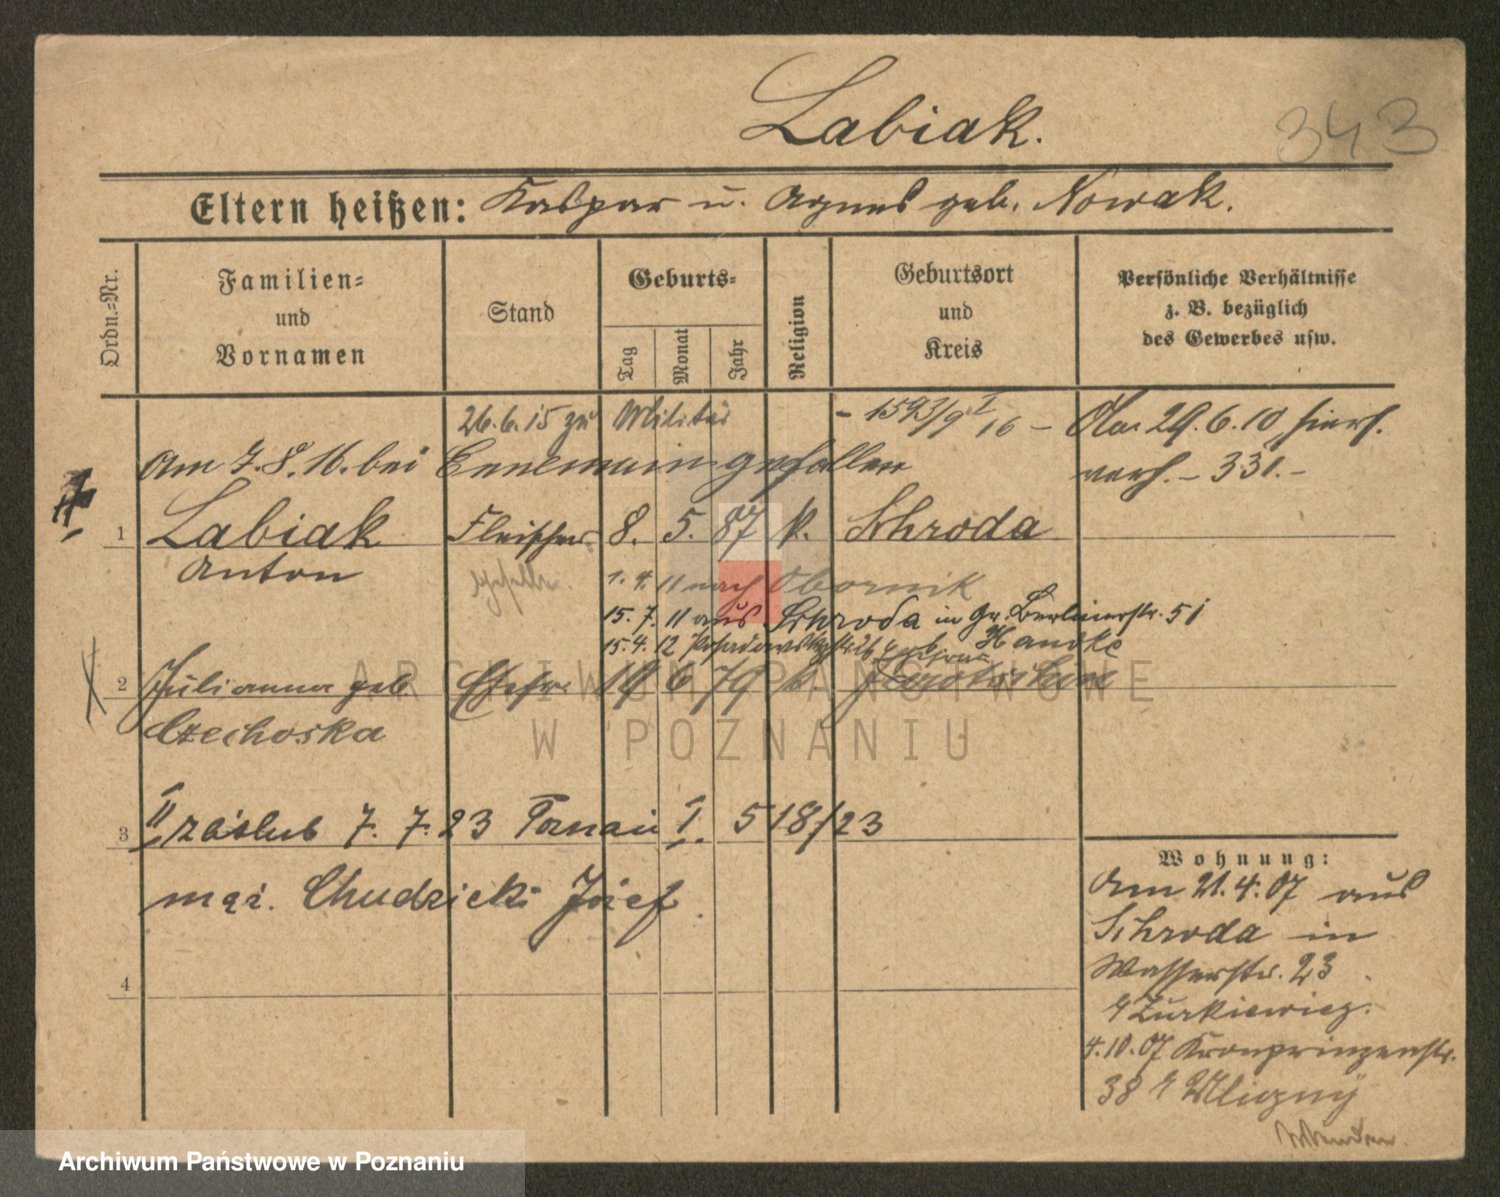 Labiak.
343
Eltern heißen: Kaspar u. Agnes geb. Nowak.
Ordn.=Nr.
Familien=
und
Vornamen
Stand
Geburts=
Tag
Monat
Jahr
Religion
Geburtsort
und
Kreis
Persönliche Verhältnisse
z. B. bezüglich
des Gewerbes usw.
26.6.15 zu Militär - 1593/9 I 16 -
Am 7.8.16. bei gefallen
29.6.10 hiers.
verh. - 331. -
1 Labiak Fleischer 8. 5. 87 k. Schroda
Anton geselle.
1. 4. 11 nach Obornik
15. 7. 11 aus Schroda in Gr. Berlinerstr. 51
15. 4. 12 Handke
2 Julianna geb Ehefr. 19 6 79 k.
Czechoska
3 II zaślub 7. 7. 23 Poznań I. 518/23
mąż. Chudzicki Józef.
4
Wohnung:
Am 21.4.07 aus
Schroda in
Wasserstr. 23
Zurkiewicz.
4.10.07 Kronprinzenstr.
38
ARCHIWUM PAŃSTWOWE
W POZNANIU
Archiwum Państwowe w Poznaniu